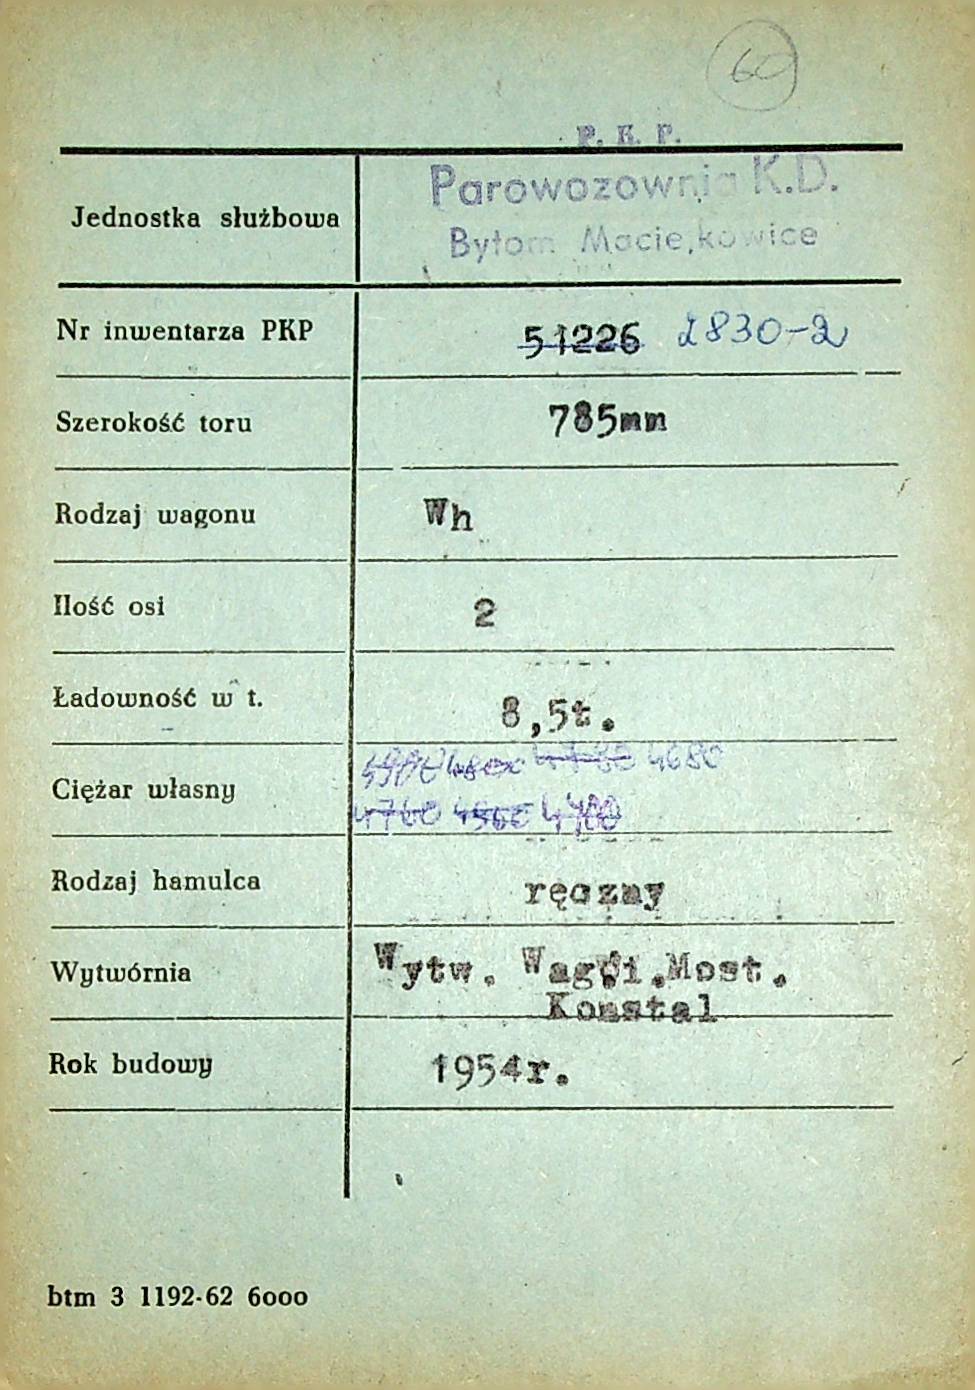 60
P. K. P.
Parowozownia K.D.
Jednostka służbowa
Bytom Maciejkowice
Nr inwentarza PKP 51226 2830-2
Szerokość toru 785mm
Rodzaj wagonu Wh
Ilość osi 2
Ładowność w t. 8,5t.
4800 4780 4680
Ciężar własny
4760 4560 4700
Rodzaj hamulca ręczny
Wytwórnia Wytw. Wag. i.Most.
Konstal
Rok budowy 1954r.
btm 3 1192-62 6ooo